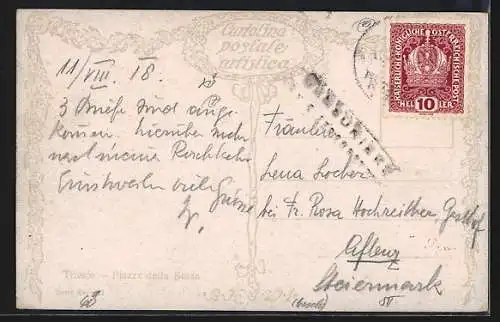 Cartolina
postale
artistica
KAISERLICHE KÖNIGLICHE ÖSTERREICHISCHE POST
HELLER
10
11/VIII. 18.
3 Briefe sind ange-
kommen. Hierüber mehr
nach meiner Rückkehr
Einstweilen viele Grüsse
Fräulein
Lena Locher
bei Fr. Rosa Hochreither, Gasthof
Aflenz
Steiermark
Trieste – Piazza della Borsa